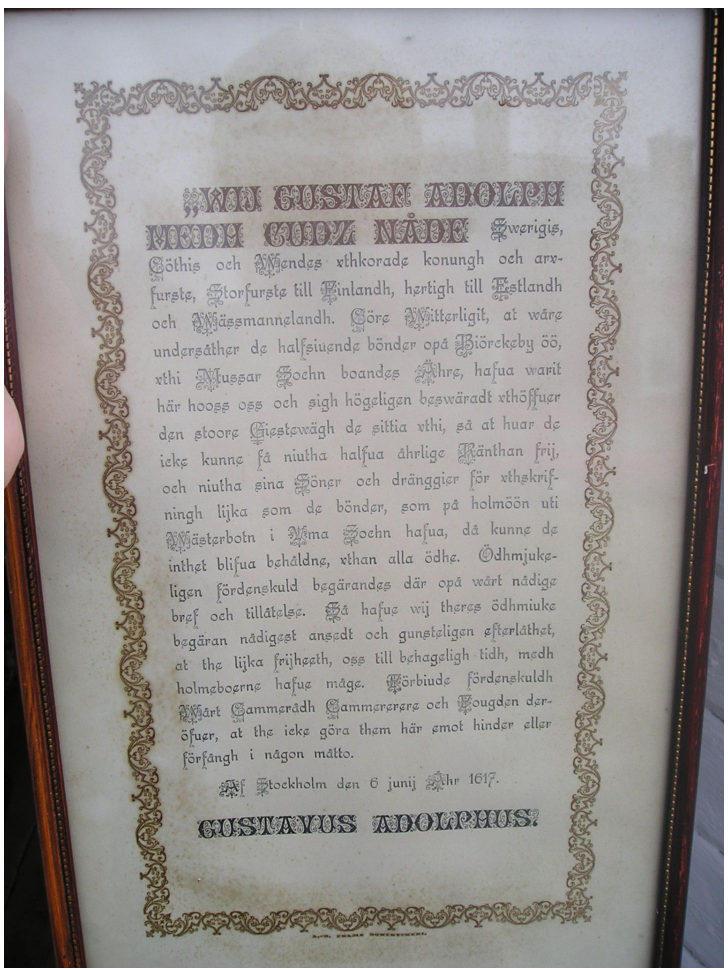 „WIJ GUSTAF ADOLPH
MEDH GUDZ NÅDE Swerigis,
Göthis och Wendes vthkorade konungh och arv-
furste, Storfurste till Finlandh, hertigh till Estlandh
och Wässmannelandh. Göre Witterligit, at wåre
undersåther de halfsiuende bönder opå Biörckeby öö,
vthi Mussar Sochn boandes Ähre, hafua warit
här hooss oss och sigh högeligen beswäradt vthöffuer
den stoore Giestewägh de sittia vthi, så at huar de
icke kunne få niutha halfua åhrlige Ränthan frij,
och niutha sina Söner och dränggier för vthskrif-
ningh lijka som de bönder, som på holmöön uti
Wästerbotn i Vma Sochn hafua, då kunne de
inthet blifua behåldne, vthan alla ödhe. Ödhmjuke-
ligen fördenskuld begärandes där opå wårt nådige
bref och tillåtelse. Så hafue wij theres ödhmiuke
begäran nådigest ansedt och gunsteligen efterlåthet,
at the lijka frijheeth, oss till behageligh tidh, medh
holmeboerne hafue måge. Förbiude fördenskuldh
Wårt Cammerådh Cammererere och Fougden der-
öfuer, at the icke göra them här emot hinder eller
förfångh i någon måtto.
Af Stockholm den 6 junij Åhr 1617.
GUSTAVUS ADOLPHUS.